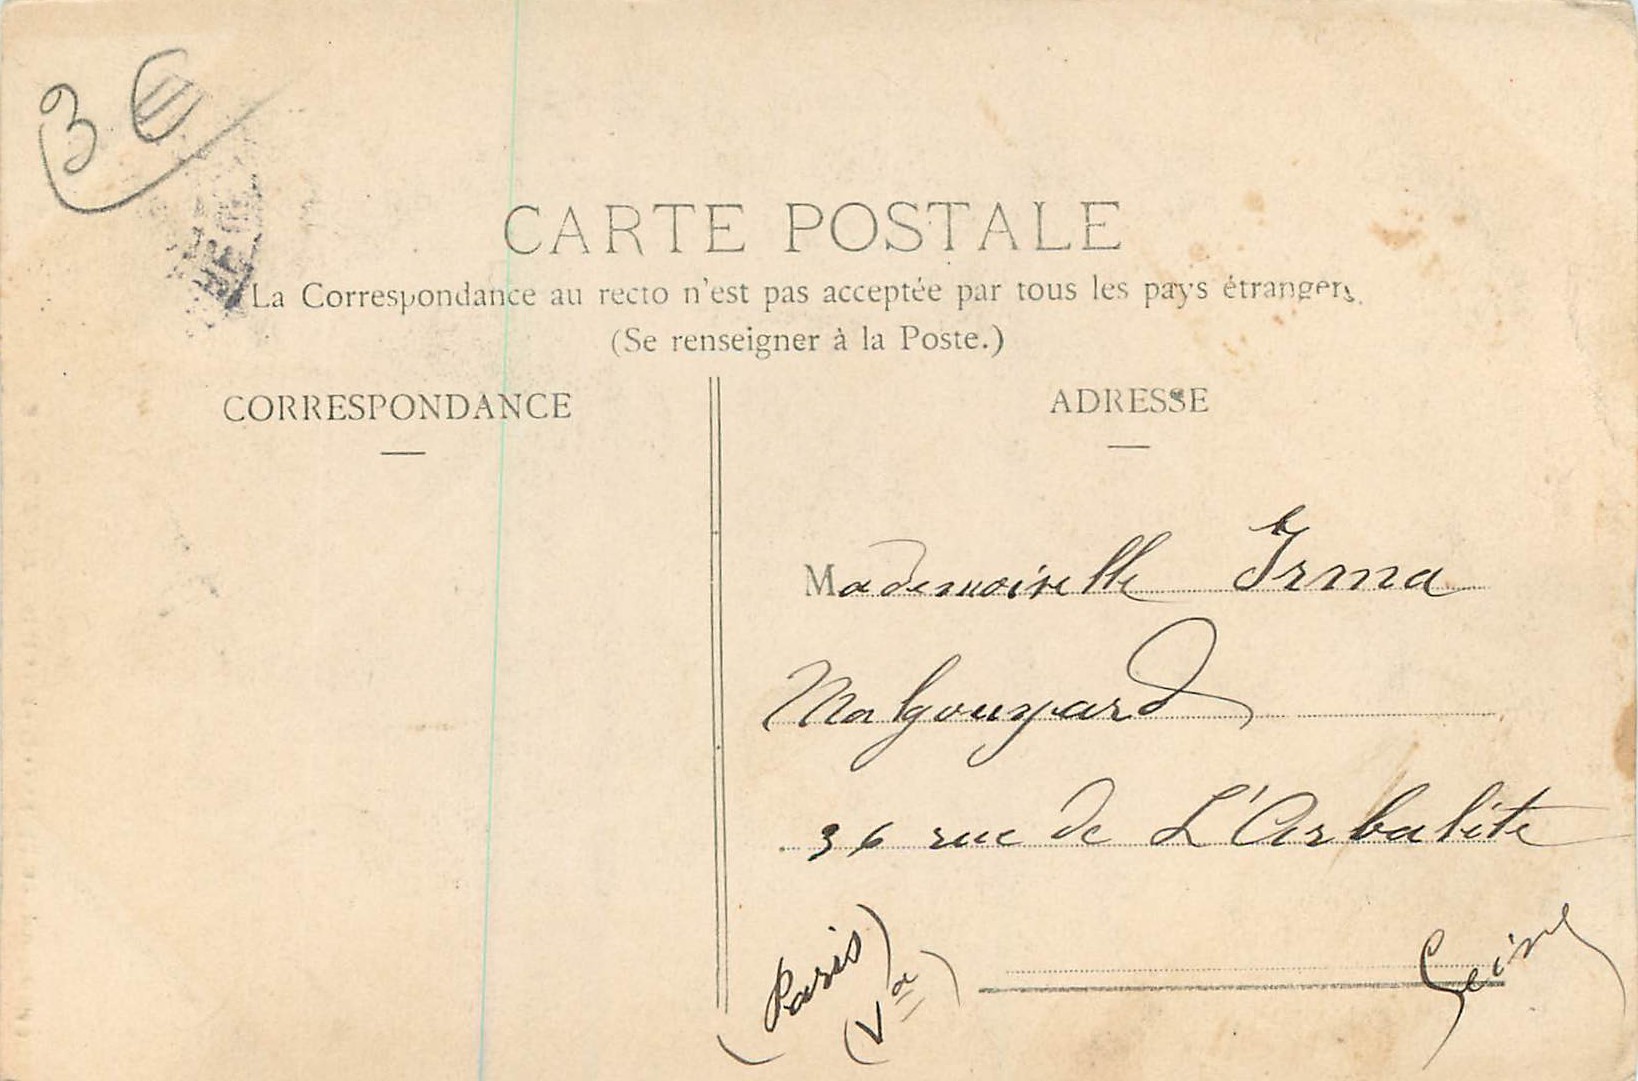 3 €
CARTE POSTALE
La Correspondance au recto n'est pas acceptée par tous les pays étrangers.
(Se renseigner à la Poste.)
CORRESPONDANCE
ADRESSE
Mademoiselle Irma
Malgouyard
36 rue de L'Arbalète
(Paris)
(Ve)
Seine